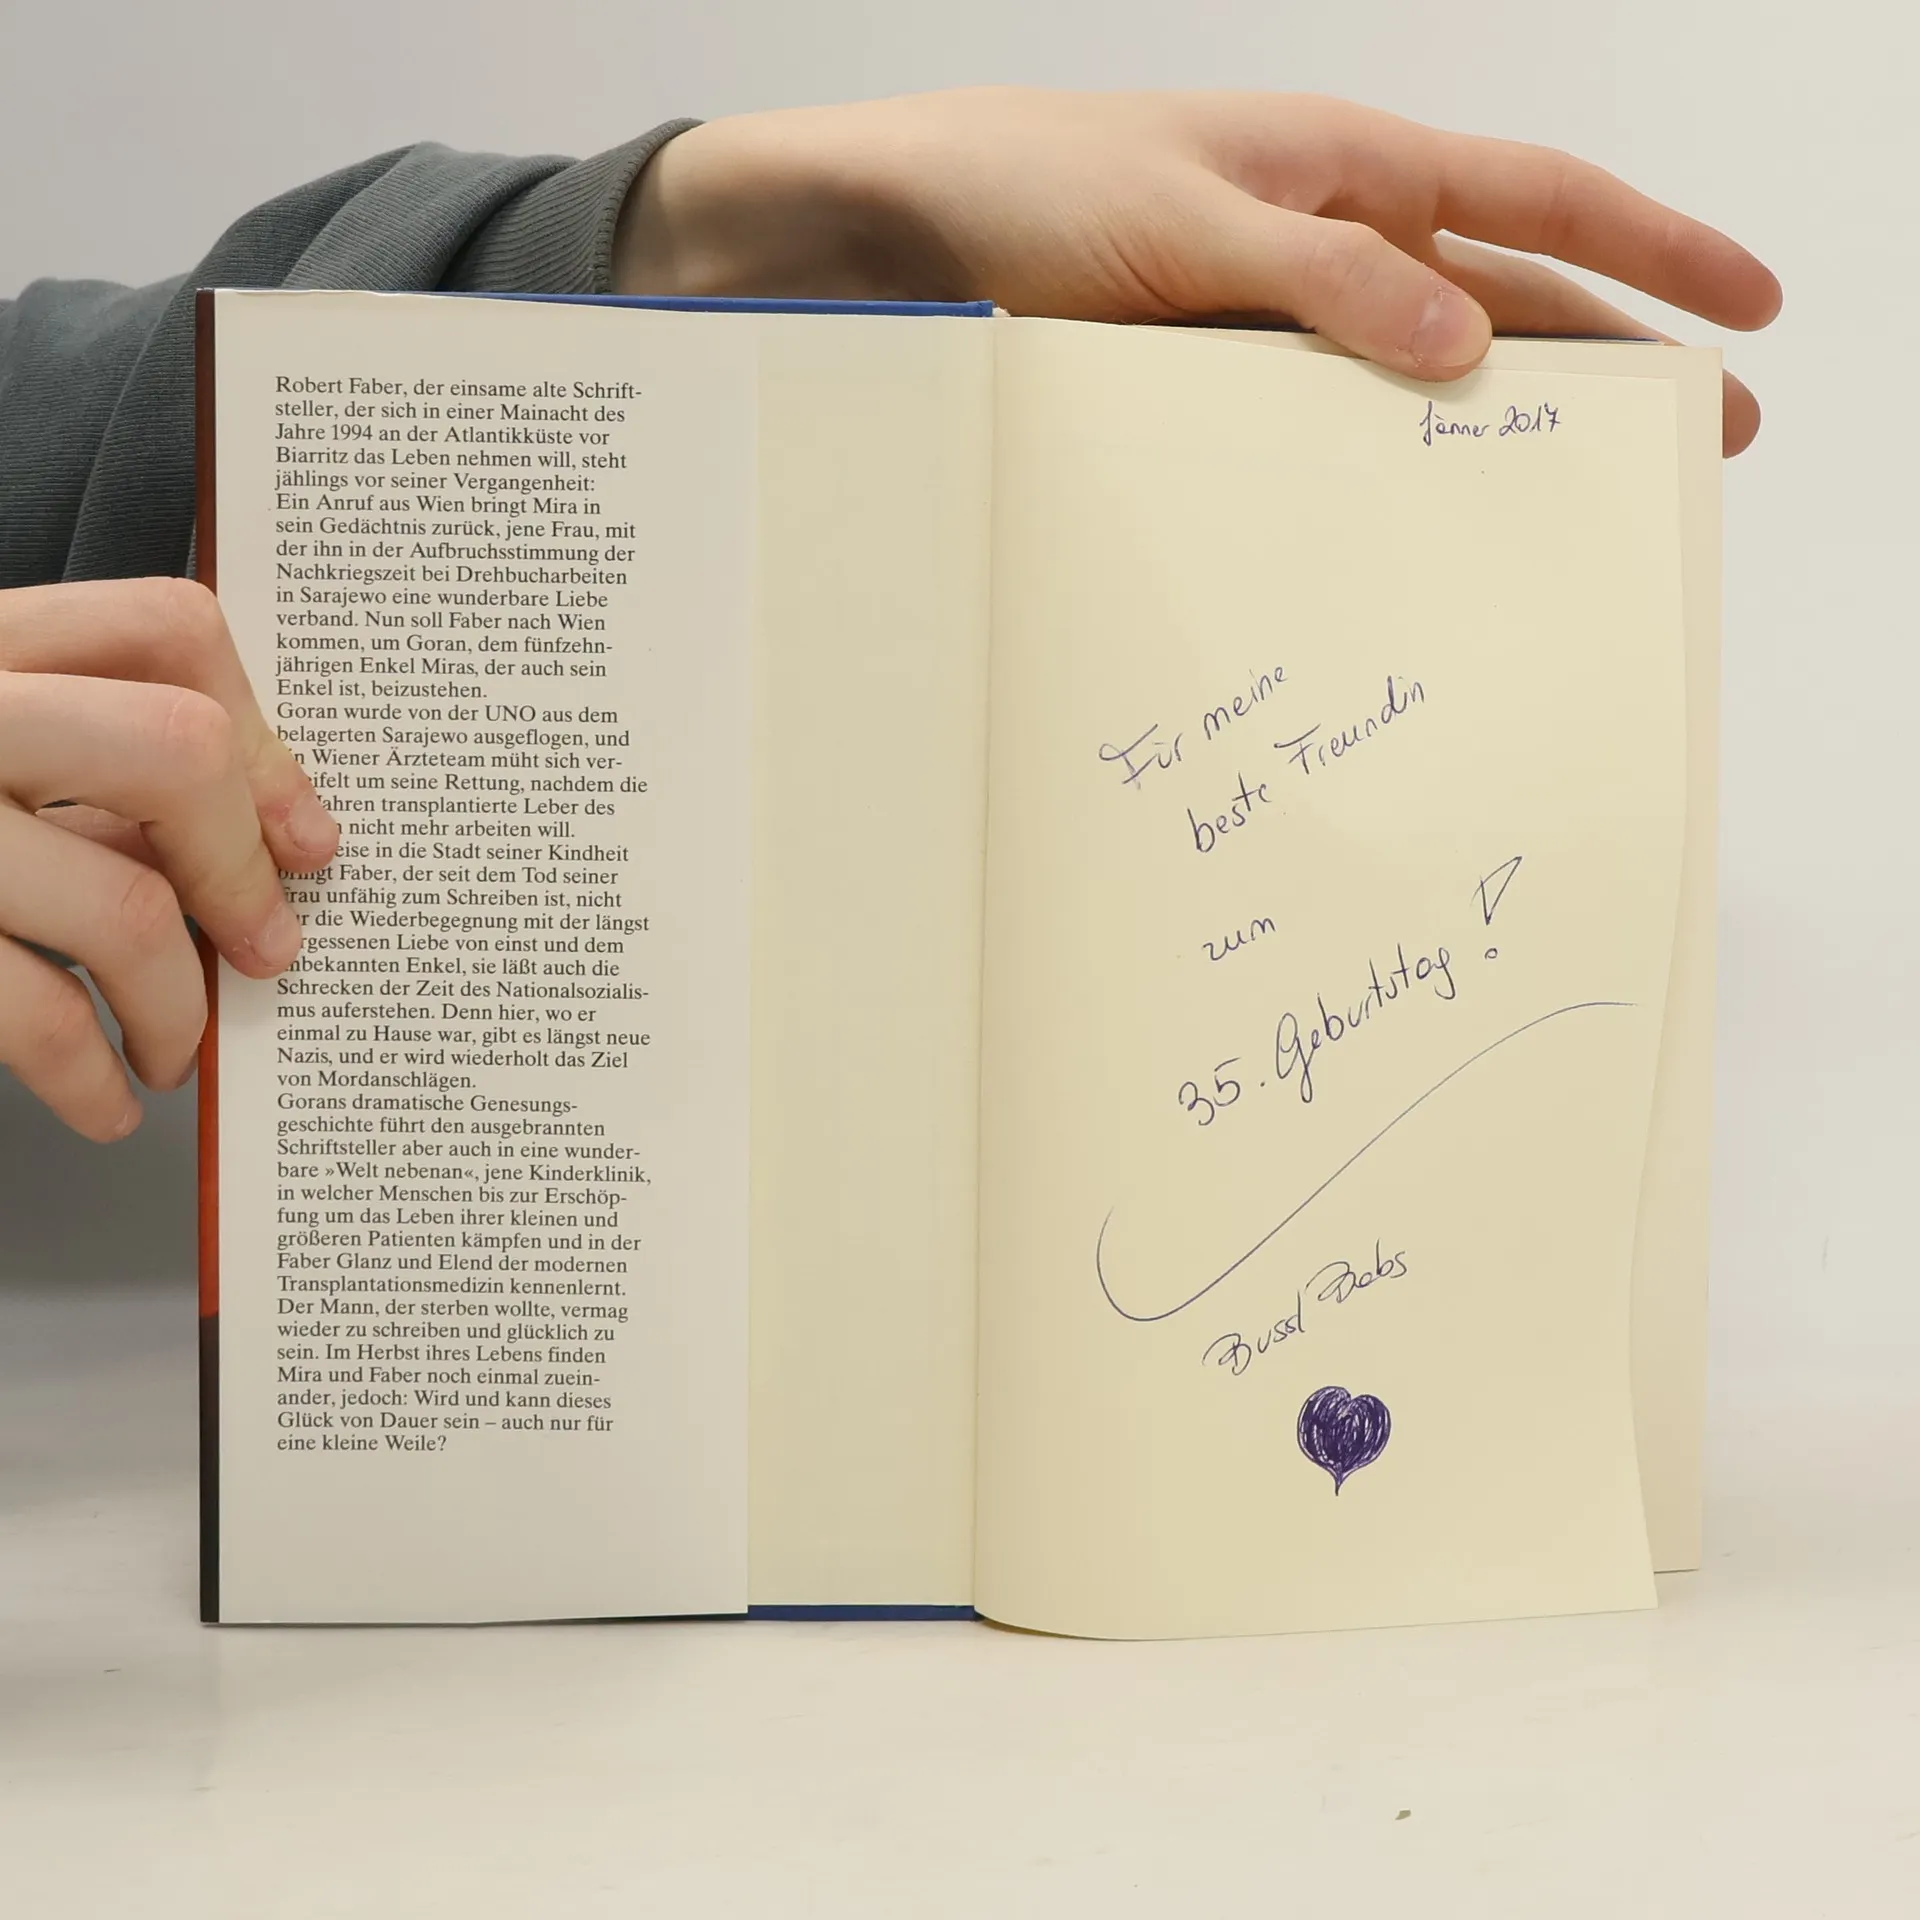 Robert Faber, der einsame alte Schrift-
steller, der sich in einer Mainacht des
Jahre 1994 an der Atlantikküste vor
Biarritz das Leben nehmen will, steht
jählings vor seiner Vergangenheit:
Ein Anruf aus Wien bringt Mira in
sein Gedächtnis zurück, jene Frau, mit
der ihn in der Aufbruchsstimmung der
Nachkriegszeit bei Drehbucharbeiten
in Sarajewo eine wunderbare Liebe
verband. Nun soll Faber nach Wien
kommen, um Goran, dem fünfzehn-
jährigen Enkel Miras, der auch sein
Enkel ist, beizustehen.
Goran wurde von der UNO aus dem
belagerten Sarajewo ausgeflogen, und
Wiener Ärzteteam müht sich ver-
eifelt um seine Rettung, nachdem die
ahren transplantierte Leber des
nicht mehr arbeiten will.
eise in die Stadt seiner Kindheit
bringt Faber, der seit dem Tod seiner
Frau unfähig zum Schreiben ist, nicht
die Wiederbegegnung mit der längst
rgessenen Liebe von einst und dem
nbekannten Enkel, sie läßt auch die
Schrecken der Zeit des Nationalsozialis-
mus auferstehen. Denn hier, wo er
einmal zu Hause war, gibt es längst neue
Nazis, und er wird wiederholt das Ziel
von Mordanschlägen.
Gorans dramatische Genesungs-
geschichte führt den ausgebrannten
Schriftsteller aber auch in eine wunder-
bare »Welt nebenan«, jene Kinderklinik,
in welcher Menschen bis zur Erschöp-
fung um das Leben ihrer kleinen und
größeren Patienten kämpfen und in der
Faber Glanz und Elend der modernen
Transplantationsmedizin kennenlernt.
Der Mann, der sterben wollte, vermag
wieder zu schreiben und glücklich zu
sein. Im Herbst ihres Lebens finden
Mira und Faber noch einmal zuein-
ander, jedoch: Wird und kann dieses
Glück von Dauer sein – auch nur für
eine kleine Weile?
Jänner 2017
Für meine
beste Freundin
zum
35. Geburtstag!
Bussl Babs